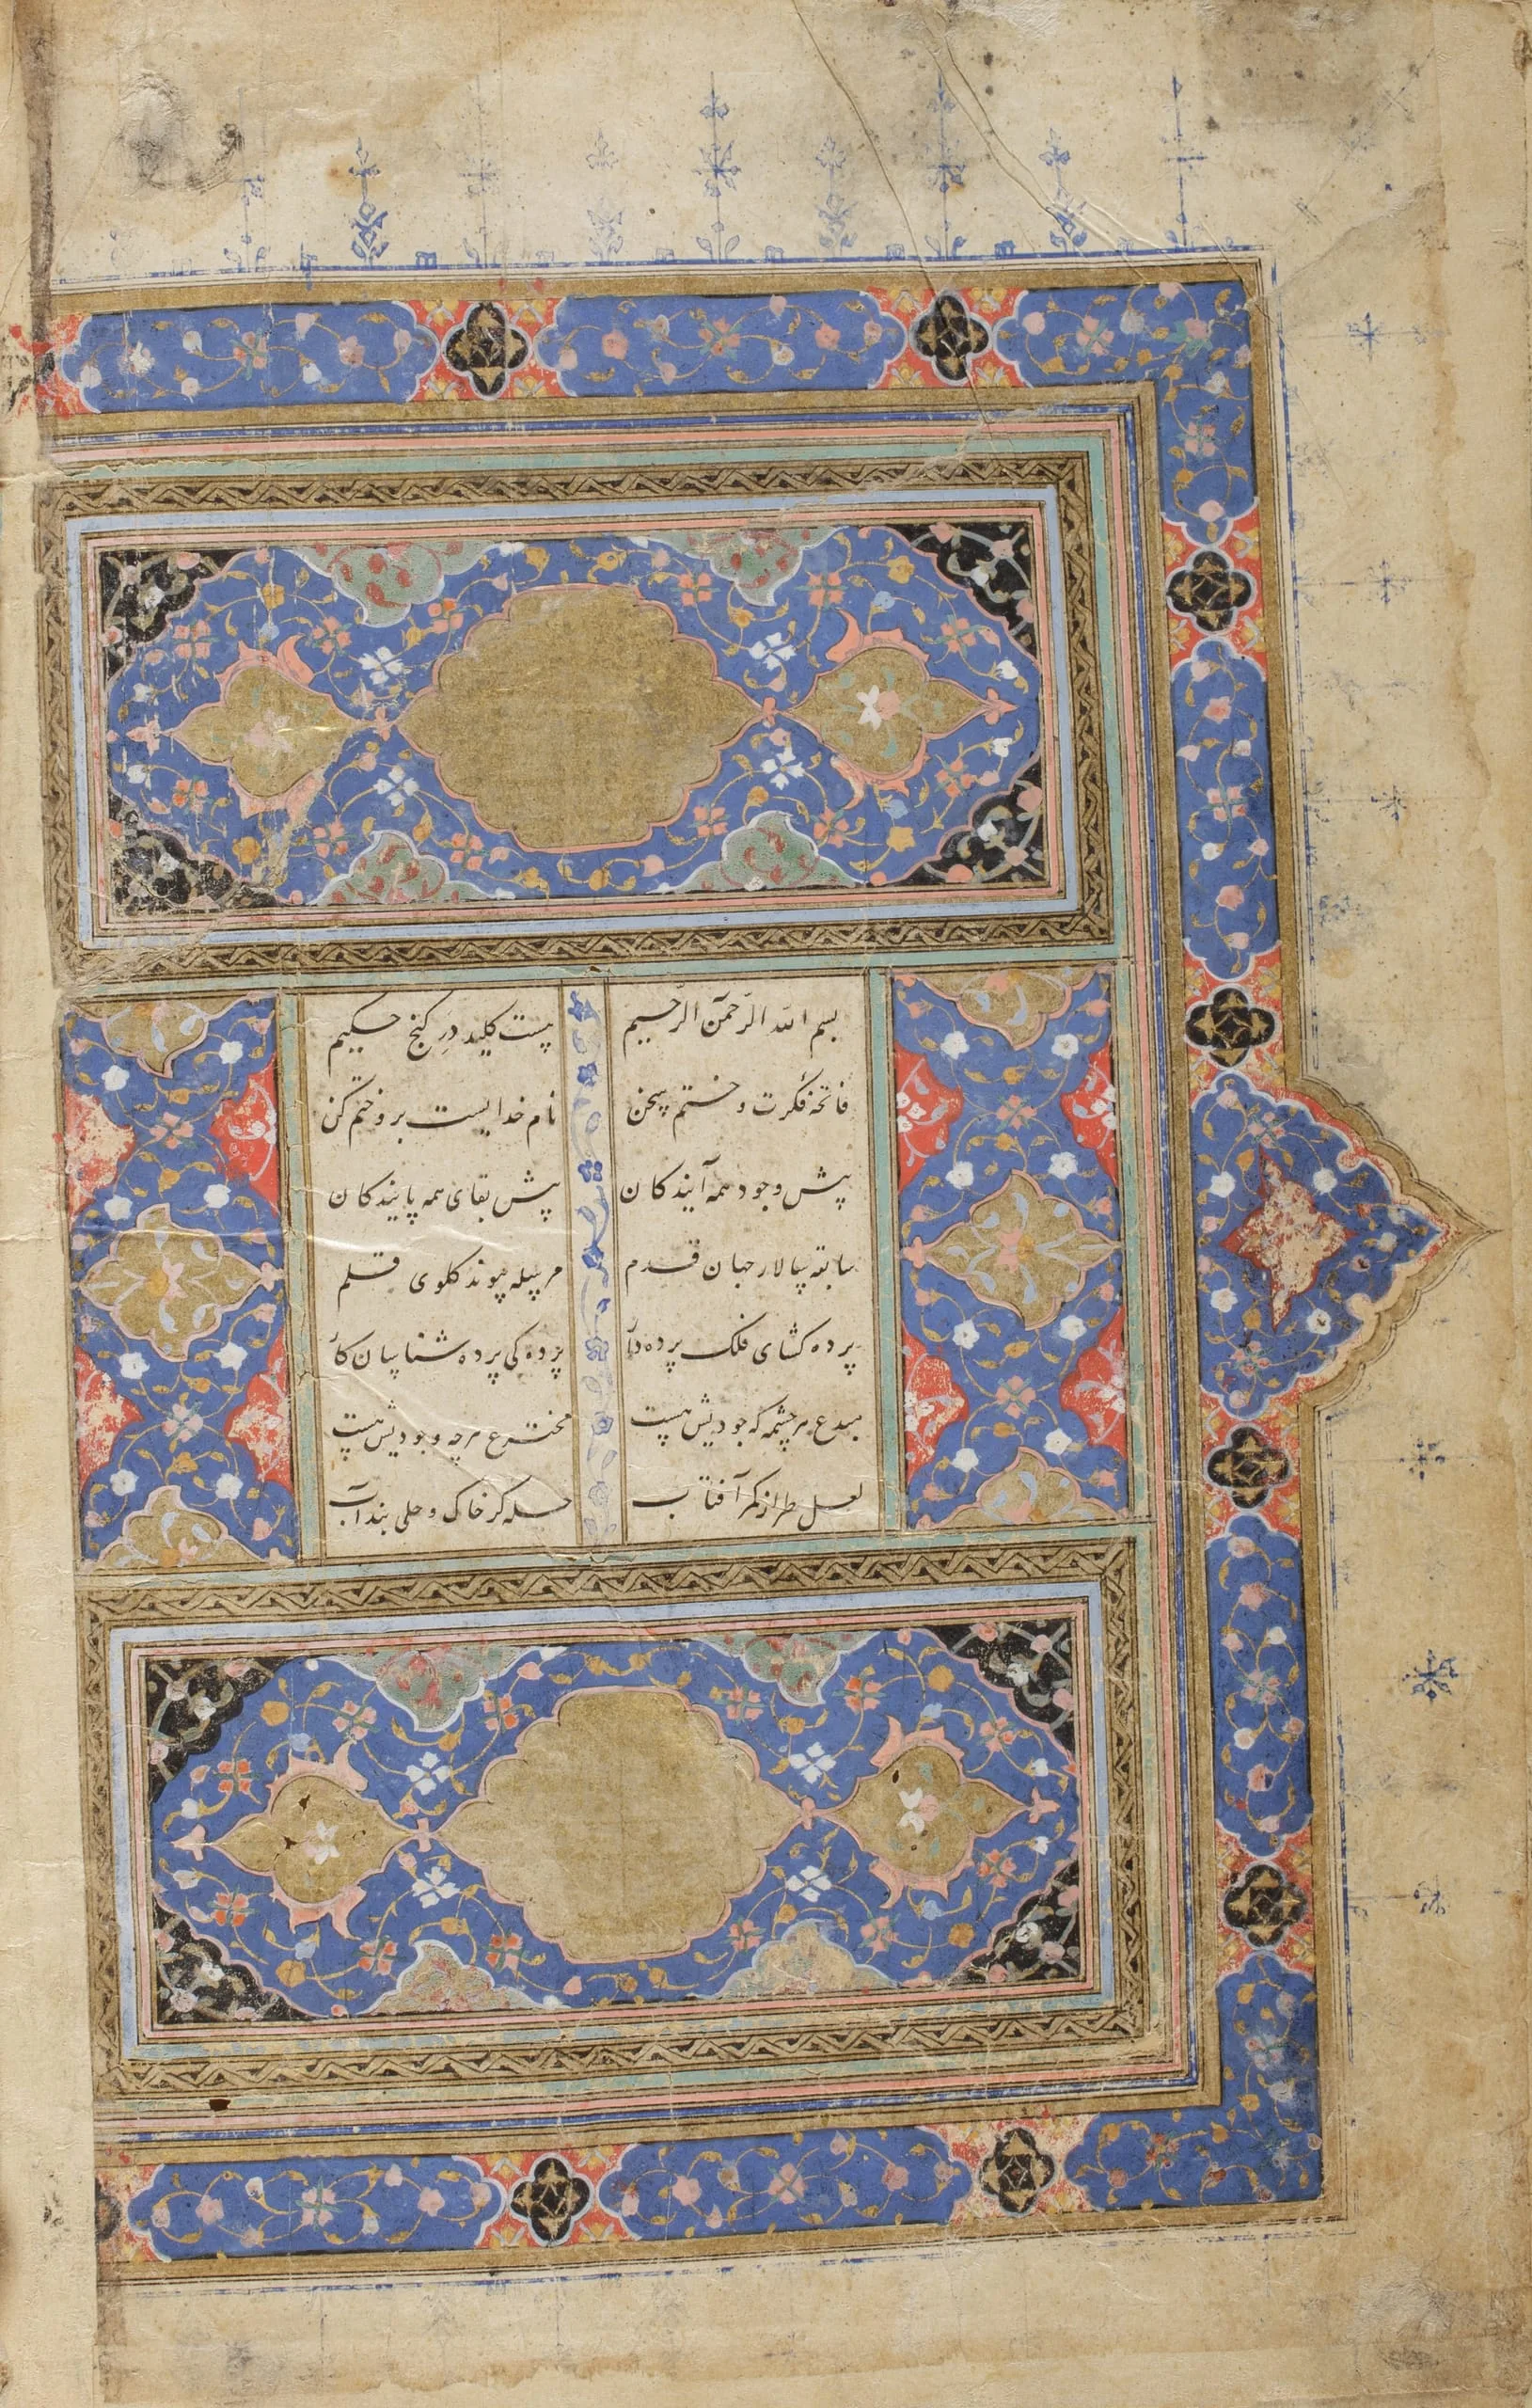 بسم الله الرّحمن الرّحیم هست کلید دَرِ کنج حکیم
فاتحهٔ فکرت و ختم سخن نام خدایست برو ختم کن
پیش وجود همه آیندکان پیش بقای همه پایندکان
سابقه سالار جهان قدم مرسله پیوند کلوی قلم
پرده کشای فلک پرده دار پردکی پرده شناسان کار
مبدع هر چشمه که جودیش هست مخترع هرچه وجودیش هست
لعل طراز کمر آفتاب حله کر خاک و حلی بند آب